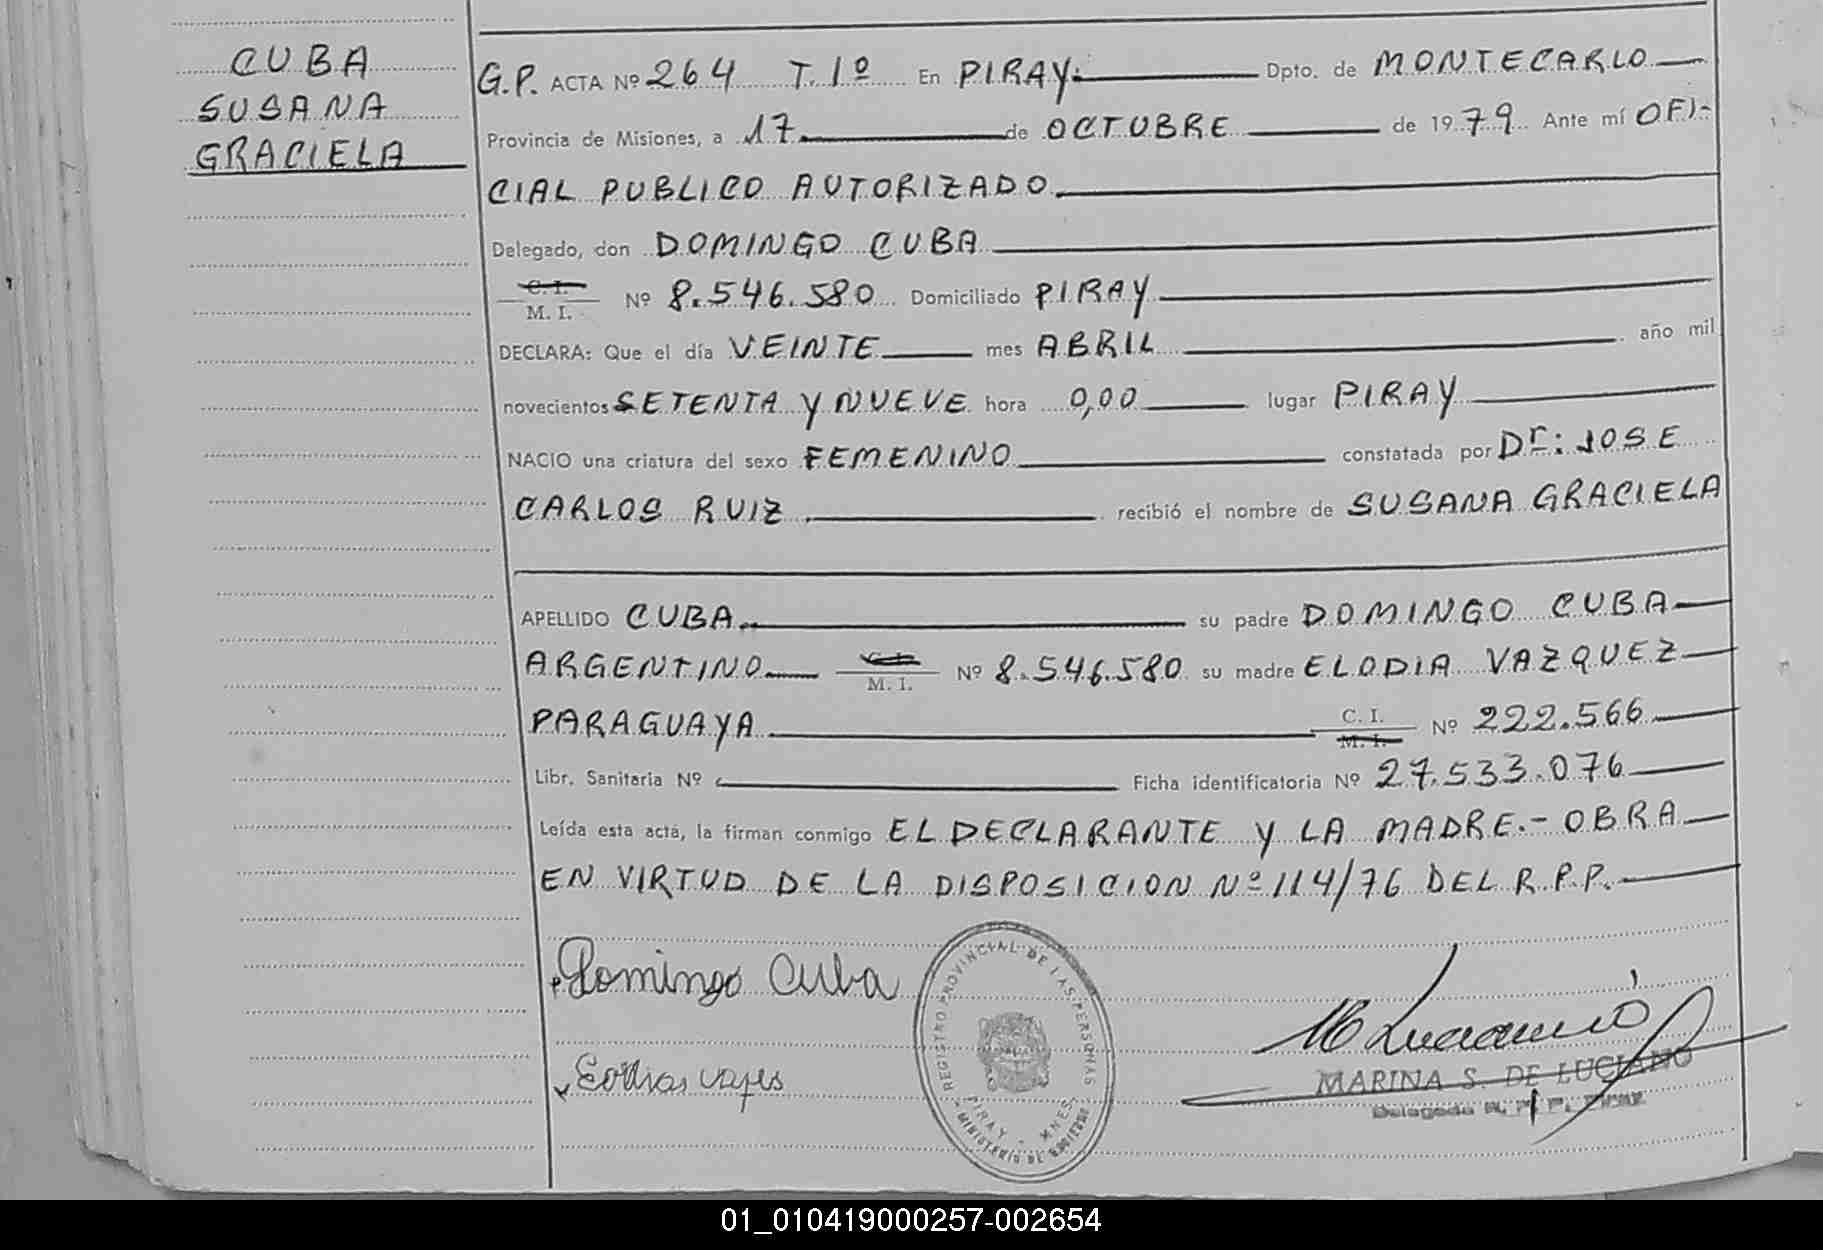 CUBA
SUSANA
GRACIELA
G.P. ACTA Nº 264 T. 1º En PIRAY.- Dpto. de MONTECARLO
Provincia de Misiones, a 17 de OCTUBRE de 1979 Ante mí OFI-
CIAL PUBLICO AUTORIZADO
Delegado, don DOMINGO CUBA
C. I.
M. I. Nº 8.546.580 Domiciliado PIRAY
DECLARA: Que el día VEINTE mes ABRIL año mil
novecientos SETENTA Y NUEVE hora 0,00 lugar PIRAY
NACIO una criatura del sexo FEMENINO constatada por Dr: JOSE
CARLOS RUIZ recibió el nombre de SUSANA GRACIELA
APELLIDO CUBA su padre DOMINGO CUBA
ARGENTINO C. I. M. I. Nº 8.546.580 su madre ELODIA VAZQUEZ
PARAGUAYA C. I. M. I. Nº 222.566
Libr. Sanitaria Nº Ficha identificatoria Nº 27.533.076
Leída esta acta, la firman conmigo EL DECLARANTE Y LA MADRE.- OBRA
EN VIRTUD DE LA DISPOSICION Nº 114/76 DEL R.P.P.
Domingo Cuba
REGISTRO PROVINCIAL DE LAS PERSONAS
PIRAY - MNES.
MINISTERIO DE GOBIERNO
MARINA S. DE LUCIANO
Delegada R. P. P. Piray
01_010419000257-002654